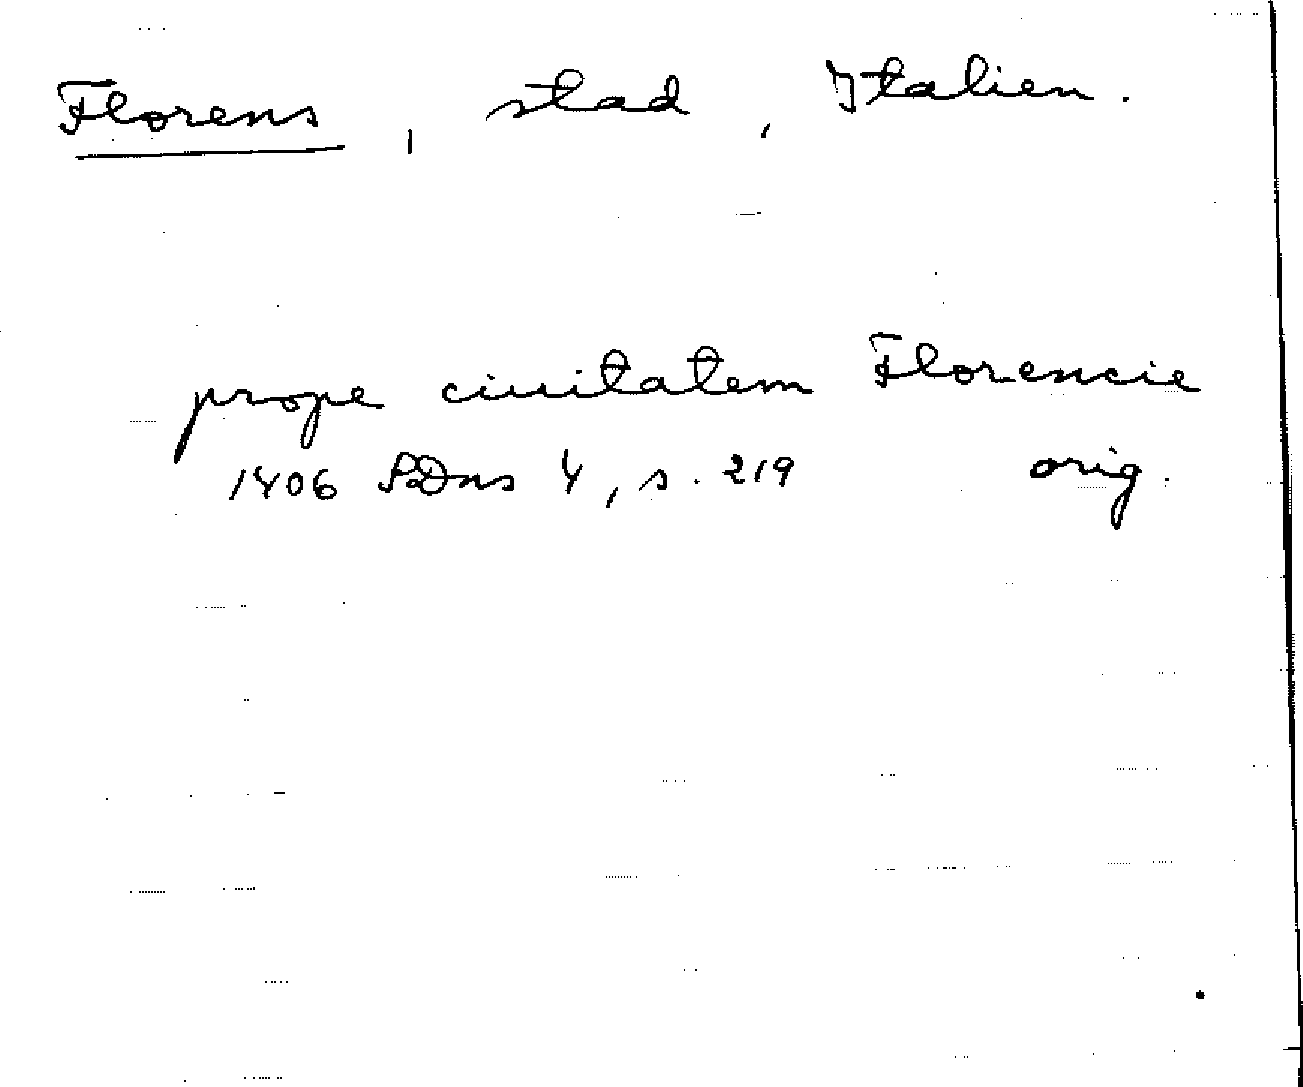 Florens, stad, Italien.
prope ciuitatem Florencie
1406 SDns 4, s. 219 orig.